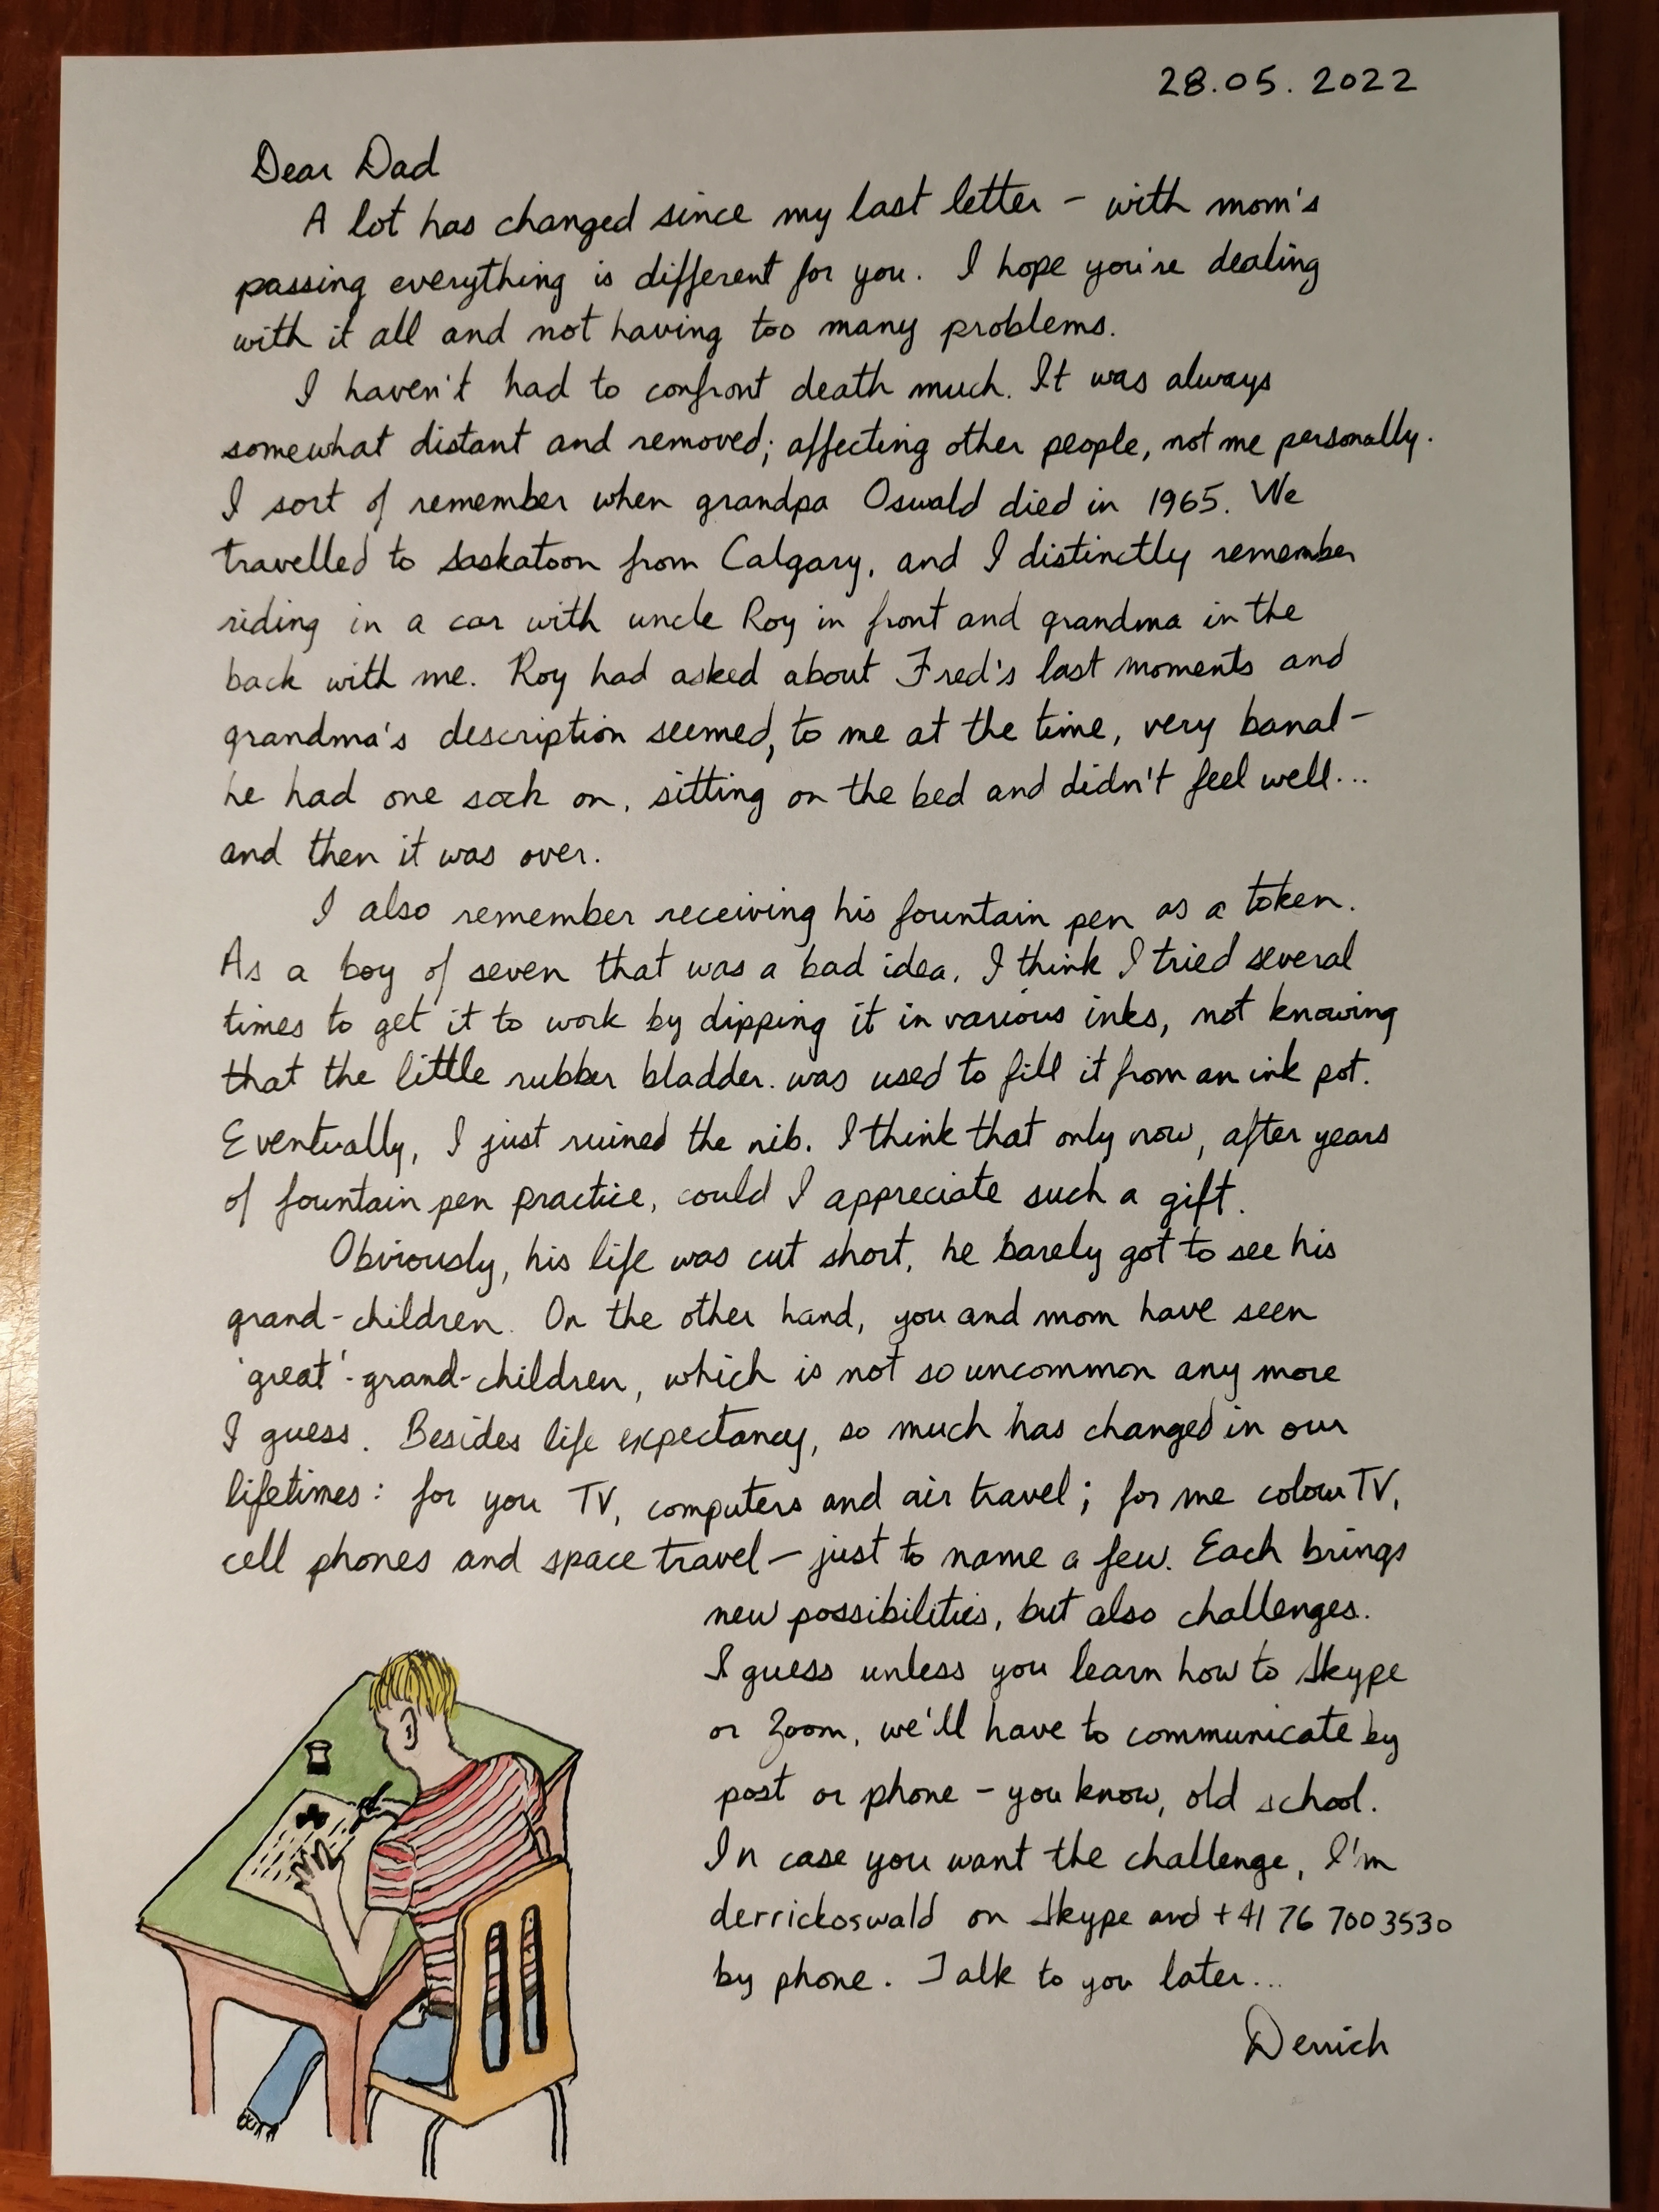 28.05.2022
Dear Dad
A lot has changed since my last letter – with mom's
passing everything is different for you. I hope you're dealing
with it all and not having too many problems.
I haven't had to confront death much. It was always
somewhat distant and removed; affecting other people, not me personally.
I sort of remember when grandpa Oswald died in 1965. We
travelled to Saskatoon from Calgary, and I distinctly remember
riding in a car with uncle Roy in front and grandma in the
back with me. Roy had asked about Fred's last moments and
grandma's description seemed, to me at the time, very banal –
he had one sock on, sitting on the bed and didn't feel well...
and then it was over.
I also remember receiving his fountain pen as a token.
As a boy of seven that was a bad idea. I think I tried several
times to get it to work by dipping it in various inks, not knowing
that the little rubber bladder was used to fill it from an ink pot.
Eventually, I just ruined the nib. I think that only now, after years
of fountain pen practice, could I appreciate such a gift.
Obviously, his life was cut short, he barely got to see his
grand-children. On the other hand, you and mom have seen
'great'-grand-children, which is not so uncommon any more
I guess. Besides life expectancy, so much has changed in our
lifetimes: for you TV, computers and air travel; for me colour TV,
cell phones and space travel – just to name a few. Each brings
new possibilities, but also challenges.
I guess unless you learn how to Skype
or Zoom, we'll have to communicate by
post or phone – you know, old school.
In case you want the challenge, I'm
derrickoswald on Skype and +41 76 700 3530
by phone. Talk to you later...
Derrick